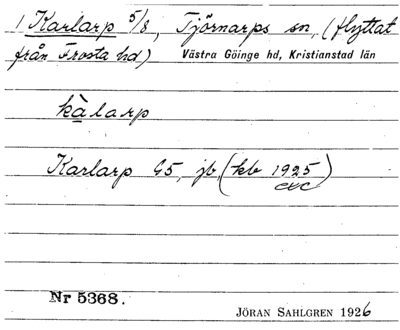 1 Karlarp 5/8, Tjörnarps sn, (flyttat
från Frosta hd) Västra Göinge hd, Kristianstad län
kàlarp
Karlarp 65, jb, (kb 1925)
Nr 5368.
JÖRAN SAHLGREN 1926